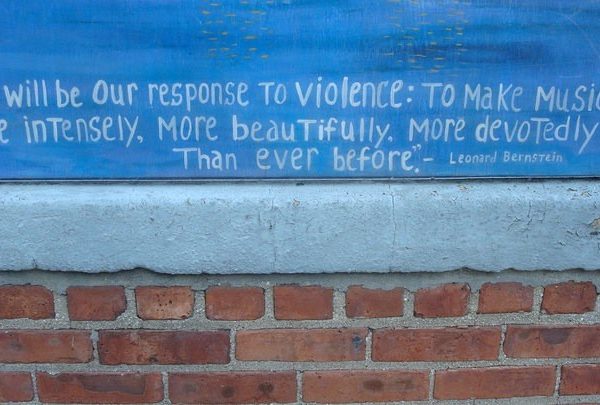 will be our response to violence: To Make Music
e intensely, More beautifully, More devotedly
Than ever before." - Leonard Bernstein